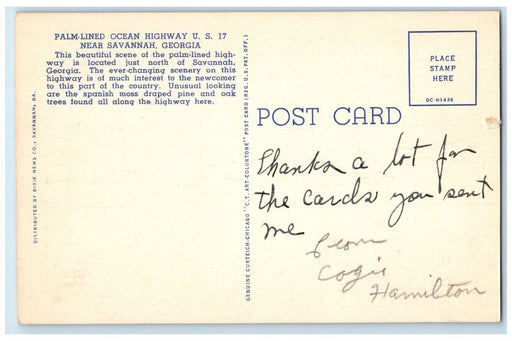 PALM-LINED OCEAN HIGHWAY U. S. 17
NEAR SAVANNAH, GEORGIA
This beautiful scene of the palm-lined high-
way is located just north of Savannah,
Georgia. The ever-changing scenery on this
highway is of much interest to the newcomer
to this part of the country. Unusual looking
are the spanish moss draped pine and oak
trees found all along the highway here.
DISTRIBUTED BY DIXIE NEWS CO., SAVANNAH, GA.
GENUINE CURTEICH-CHICAGO "C.T. ART-COLORTONE" POST CARD (REG. U. S. PAT. OFF.)
POST CARD
PLACE
STAMP
HERE
OC-H1436
Thanks a lot for
the cards you sent
me
from
Hamilton